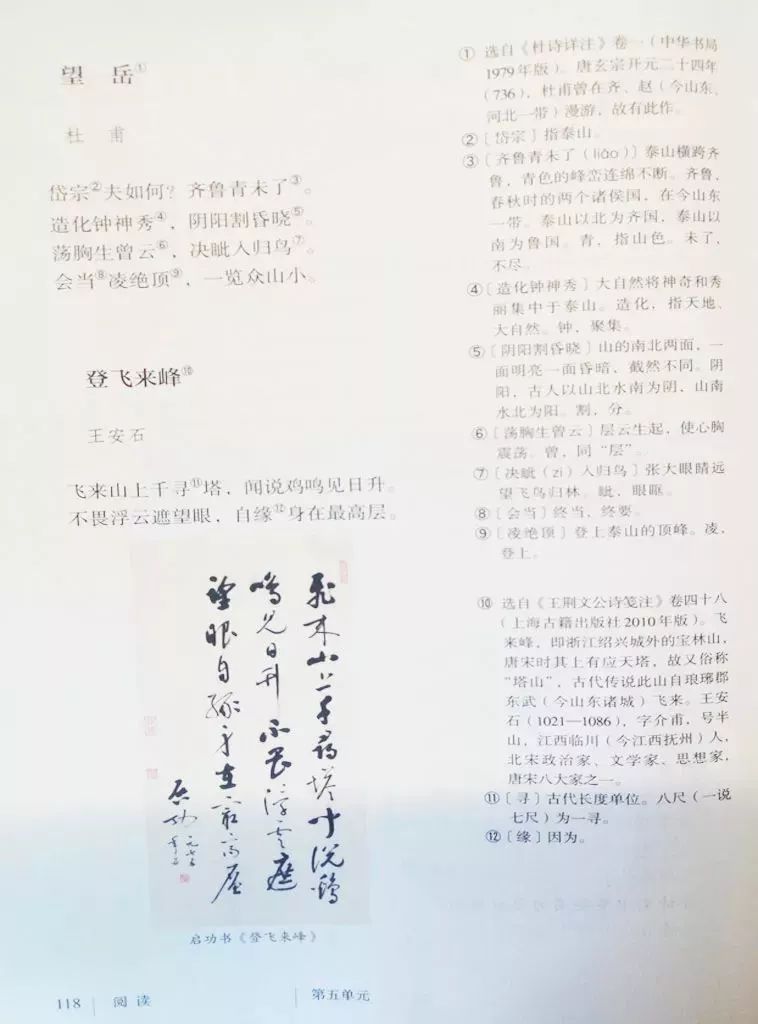 望 岳①
杜 甫
岱宗②夫如何？齐鲁青未了③。
造化钟神秀④，阴阳割昏晓⑤。
荡胸生曾云⑥，决眦入归鸟⑦。
会当⑧凌绝顶⑨，一览众山小。
登飞来峰⑩
王安石
飞来山上千寻⑪塔，闻说鸡鸣见日升。
不畏浮云遮望眼，自缘⑫身在最高层。
飞来山上千寻塔闻说鸡
鸣见日升不畏浮云遮
望眼自缘身在最高层
启功
启功书《登飞来峰》
① 选自《杜诗详注》卷一（中华书局
1979年版）。唐玄宗开元二十四年
（736），杜甫曾在齐、赵（今山东、
河北一带）漫游，故有此作。
②〔岱宗〕指泰山。
③〔齐鲁青未了（liǎo）〕泰山横跨齐
鲁，青色的峰峦连绵不断。齐鲁，
春秋时的两个诸侯国，在今山东
一带。泰山以北为齐国，泰山以
南为鲁国。青，指山色。未了，
不尽。
④〔造化钟神秀〕大自然将神奇和秀
丽集中于泰山。造化，指天地、
大自然。钟，聚集。
⑤〔阴阳割昏晓〕山的南北两面，一
面明亮一面昏暗，截然不同。阴
阳，古人以山北水南为阴，山南
水北为阳。割，分。
⑥〔荡胸生曾云〕层云生起，使心胸
震荡。曾，同“层”。
⑦〔决眦（zì）入归鸟〕张大眼睛远
望飞鸟归林。眦，眼眶。
⑧〔会当〕终当，终要。
⑨〔凌绝顶〕登上泰山的顶峰。凌，
登上。
⑩ 选自《王荆文公诗笺注》卷四十八
（上海古籍出版社2010年版）。飞
来峰，即浙江绍兴城外的宝林山，
唐宋时其上有应天塔，故又俗称
“塔山”，古代传说此山自琅琊郡
东武（今山东诸城）飞来。王安
石（1021—1086），字介甫，号半
山，江西临川（今江西抚州）人，
北宋政治家、文学家、思想家，
唐宋八大家之一。
⑪〔寻〕古代长度单位。八尺（一说
七尺）为一寻。
⑫〔缘〕因为。
118 阅 读 第五单元